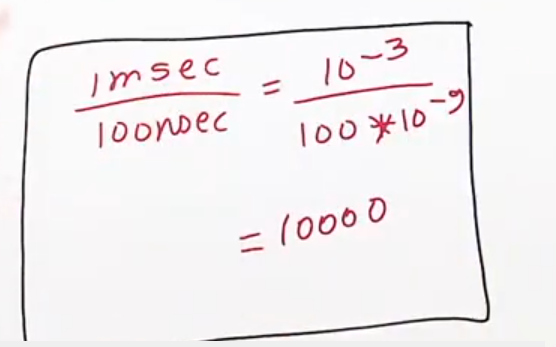 1msec / 100nsec = 10^-3 / 100*10^-9
= 10000